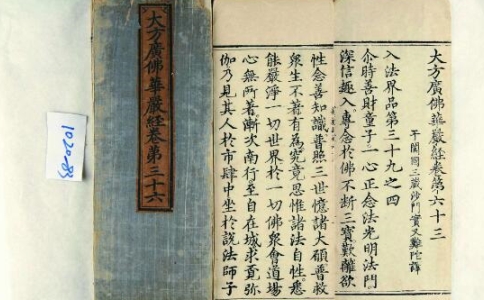 大方廣佛華嚴經卷第六十三
于闐國三藏沙門實叉難陀譯
入法界品第三十九之四
尒時善財童子一心正念法光明法門
深信趣入專念於佛不斷三寶歎離欲
性念善知識普照三世憶諸大願普救
衆生不著有為究竟思惟諸法自性悉
能嚴淨一切世界於一切佛衆會道場
心無所著漸次南行至自在城求覓彌
伽乃見其人於市肆中坐於說法師子
大方廣佛華嚴經卷第三十六